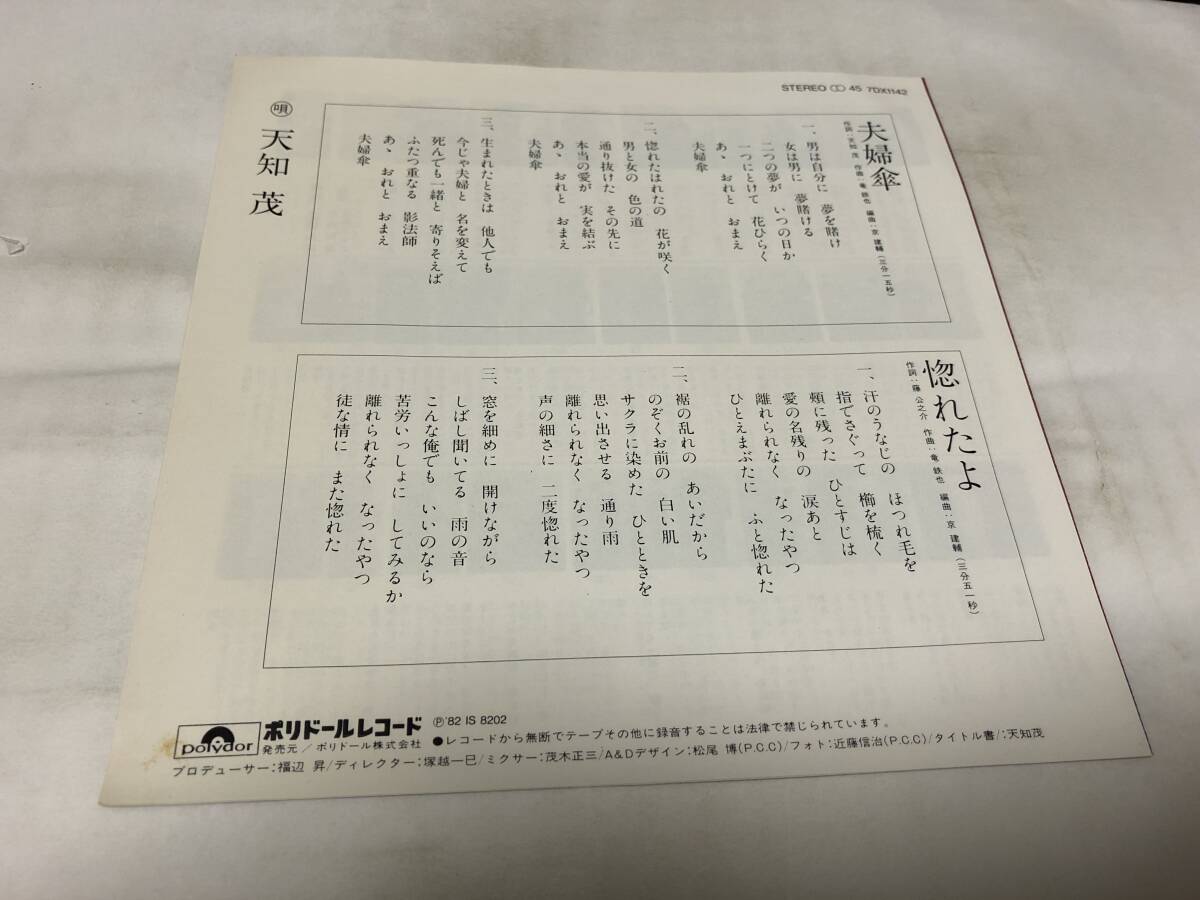 STEREO 45 7DX1142
夫婦傘
作詞：天知 茂 作曲：竜 鉄也 編曲：京 建輔（三分一五秒）
一、男は自分に 夢を賭け
女は男に 夢賭ける
二つの夢が いつの日か
一つにとけて 花ひらく
あゝ おれと おまえ
夫婦傘
二、惚れたはれたの 花が咲く
男と女の 色の道
通り抜けた その先に
本当の愛が 実を結ぶ
あゝ おれと おまえ
夫婦傘
三、生まれたときは 他人でも
今じゃ夫婦と 名を変えて
死んでも一緒と 寄りそえば
ふたつ重なる 影法師
あゝ おれと おまえ
夫婦傘
唄 天知 茂
惚れたよ
作詞：藤 公之介 作曲：竜 鉄也 編曲：京 建輔（三分五一秒）
一、汗のうなじの ほつれ毛を
指でさぐって 櫛を梳く
頬に残った ひとすじは
愛の名残りの 涙あと
離れられなく なったやつ
ひとえまぶたに ふと惚れた
二、裾の乱れの あいだから
のぞくお前の 白い肌
サクラに染めた ひとときを
思い出させる 通り雨
離れられなく なったやつ
声の細さに 二度惚れた
三、窓を細めに 開けながら
しばし聞いてる 雨の音
こんな俺でも いいのなら
苦労いっしょに してみるか
離れられなく なったやつ
徒な情に また惚れた
polydor ポリドールレコード Ⓟ'82 IS 8202
発売元／ポリドール株式会社 ●レコードから無断でテープその他に録音することは法律で禁じられています。
プロデューサー：福辺 昇/ディレクター：塚越一巳/ミクサー：茂木正三/A&Dデザイン：松尾 博(P.C.C)/フォト：近藤信治(P.C.C)/タイトル書/：天知茂